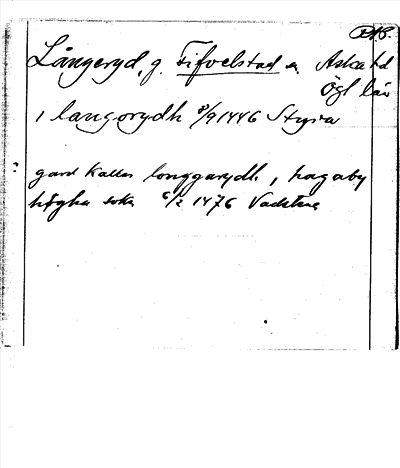 DAS.
Långeryd, g. Fifvelstad sn Aska hd
Ögl län
i langorydh 8/9 1446 Styra
gard kallas longgarydh, i hagaby
högha sokn 6/2 1476 Vadstena